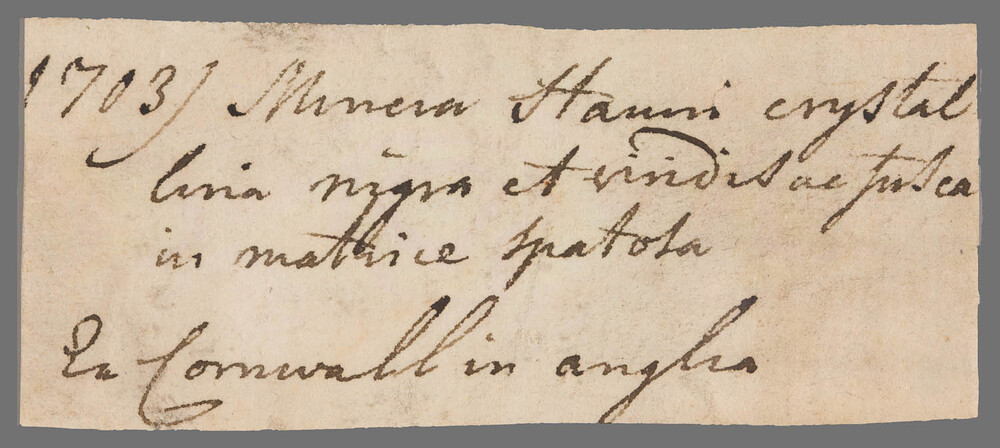 1703) Minera Stanni crystal
lina nigra et viridis ac fusca
in matrice spatosa
Ex Cornwall in anglia